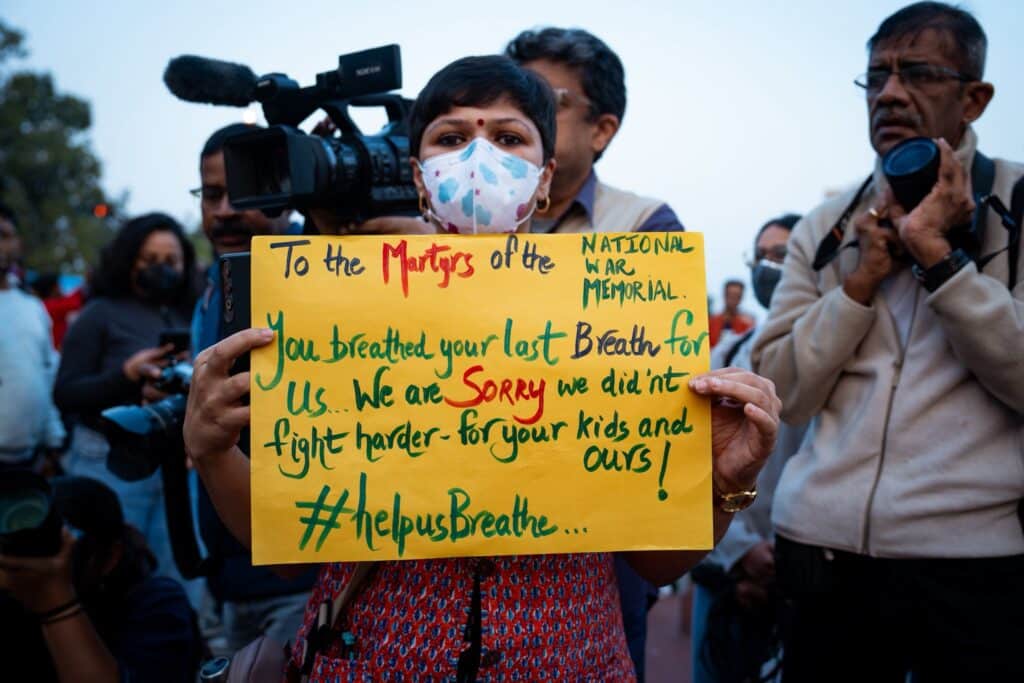 To the Martyrs of the NATIONAL
WAR
MEMORIAL.
You breathed your last Breath for
Us... We are SORRY we did'nt
fight harder - for your kids and
ours!
#helpusBreathe...